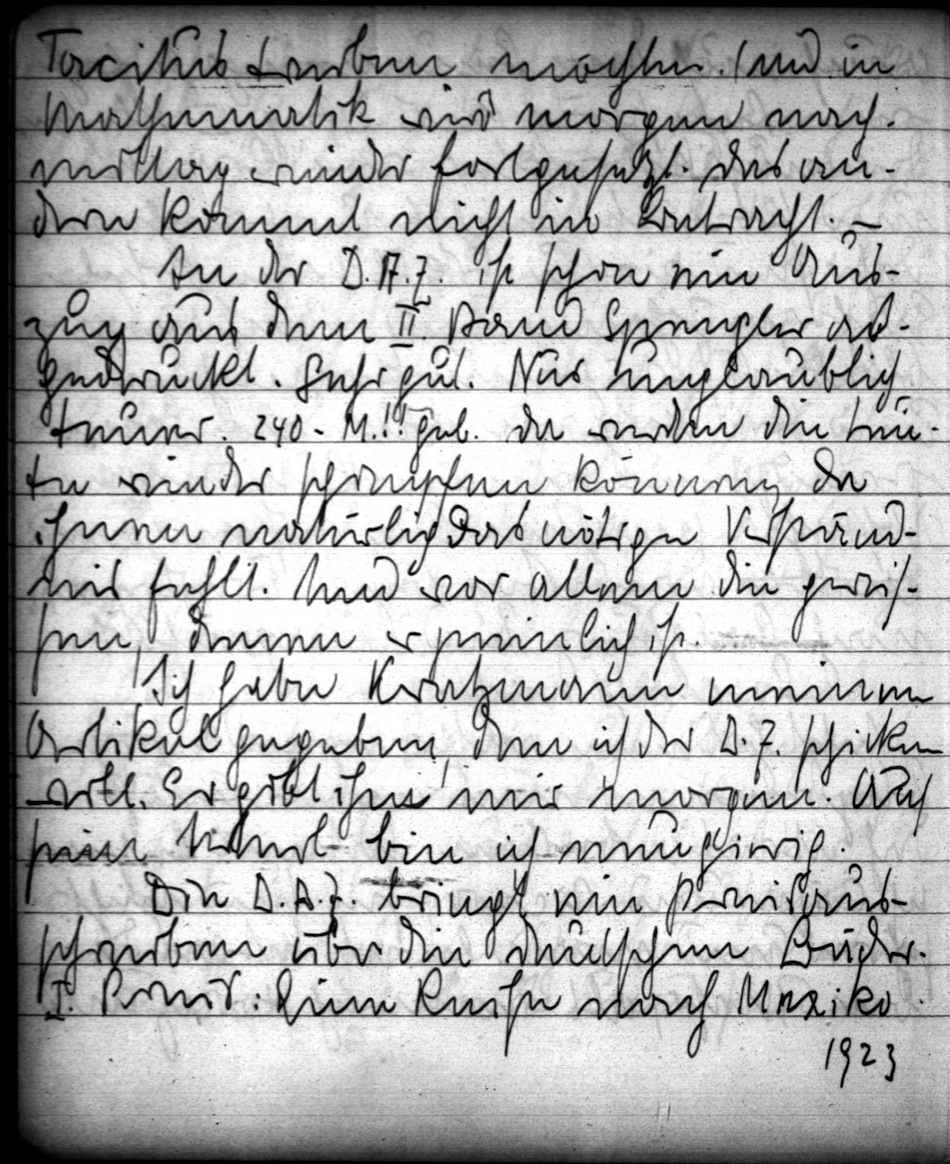 Tacitus treiben möchte. Und in
Mathematik wird morgen nach-
mittag wieder fortgesetzt. Das an-
dere kommt nicht in Betracht. –
In der D.A.Z. ist schon ein Aus-
zug aus dem II. Band Spengler ab-
gedruckt. Sehr gut. Nur unglaublich
teuer. 240.- M.!! geb. da werden die Leu-
te wieder schimpfen können, da
ihnen natürlich das nötige Verständ-
nis fehlt. Und vor allem die gewis-
sen, denen es peinlich ist.
Ich habe Kratzmann meinen
Artikel gegeben, den ich der D.Z. schicken
will. Er gibt ihn mir morgen. Auf
sein Urteil bin ich neugierig.
Die D.A.Z. bringt ein Preisaus-
schreiben über die deutschen Bücher.
I. Preis: Eine Reise nach Mexiko.
1923